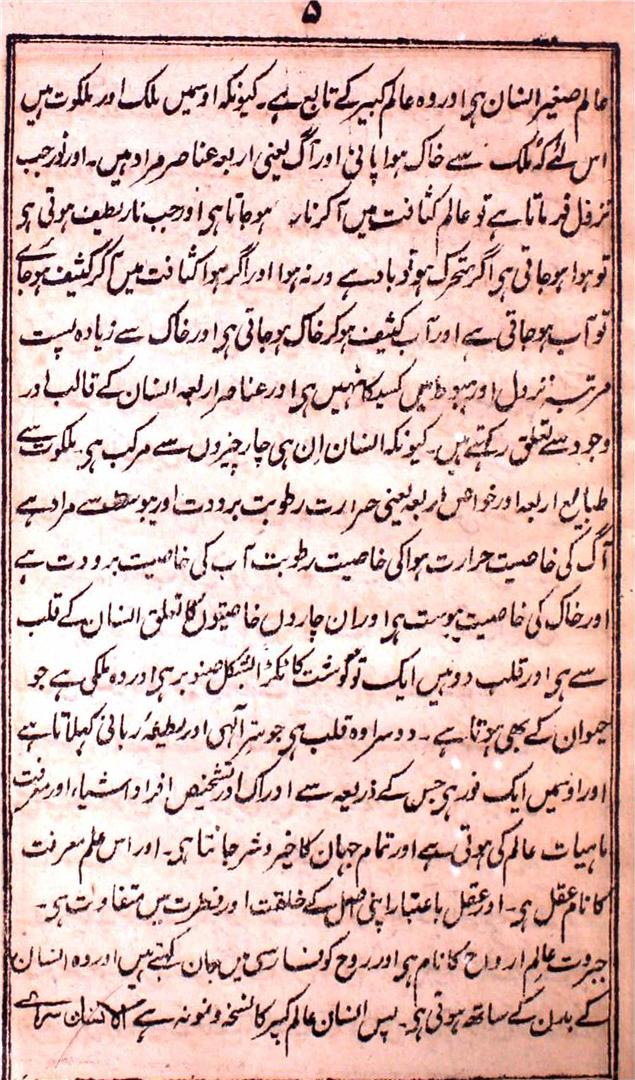 ۵
عالم صغیر انسان ہی اور وہ عالم کبیر کے تابع ہے۔ کیونکہ اوسمیں ملک اور ملکوت ہیں
اس لئے کہ ملک سے خاک ہوا پانی اور آگ یعنی اربعہ عناصر مراد ہیں۔ اور نور جب
نزول فرماتا ہے تو عالم کثافت میں آکر نار ہوجاتا ہی اور جب نار لطیف ہوتی ہی
تو ہوا ہوجاتی ہی اگر متحرک ہو تو باد ہے ورنہ ہوا اور اگر ہوا کثافت میں آکر کثیف ہوجائے
تو آب ہوجاتی ہے اور آب کثیف ہوکر خاک ہوجاتی ہی اور خاک سے زیادہ پست
مرتبہ نزول اور ہبوط میں کسیکا نہیں ہی اور عناصر اربعہ انسان کے قالب اور
وجود سے تعلق رکہتے ہیں۔ کیونکہ انسان ان ہی چار چیزوں سے مرکب ہی۔ ملکوت سے
طبایع اربعہ اور خواص اربعہ یعنی حرارت رطوبت برودت اور یبوست سے مراد ہے
آگ کی خاصیت حرارت ہوا کی خاصیت رطوبت آب کی خاصیت برودت ہے
اور خاک کی خاصیت یبوست ہی اور ان چاروں خاصیتوں کا تعلق انسان کے قلب
سے ہی اور قلب دو ہیں ایک تو گوشت کا ٹکڑا بشکل صنوبر ہی اور وہ ملکی ہے جو
حیوان کے بھی ہوتا ہے۔ دوسرا وہ قلب ہی جو سر آلہی اور لطیفۂ ربانی کہلاتا ہے
اور اوسمیں ایک نور ہی جس کے ذریعہ سے ادراک اور تشخیص افراد اشیاء اور معرفت
ماہیات عالم کی ہوتی ہے اور تمام جہان کا خیر و شر جانتا ہی۔ اور اس علم معرفت
کا نام عقل ہی۔ اور عقل باعتبار اپنی اصل کے خلقت اور فطرت میں متفاوت ہی۔
جبروت عالم ارواح کا نام ہی اور روح کو فارسی میں جان کہتے ہیں اور وہ انسان
کے بدن کے ساتھ ہوتی ہی۔ پس انسان عالم کبیر کا نسخہ و نمونہ ہے الانسان سرای